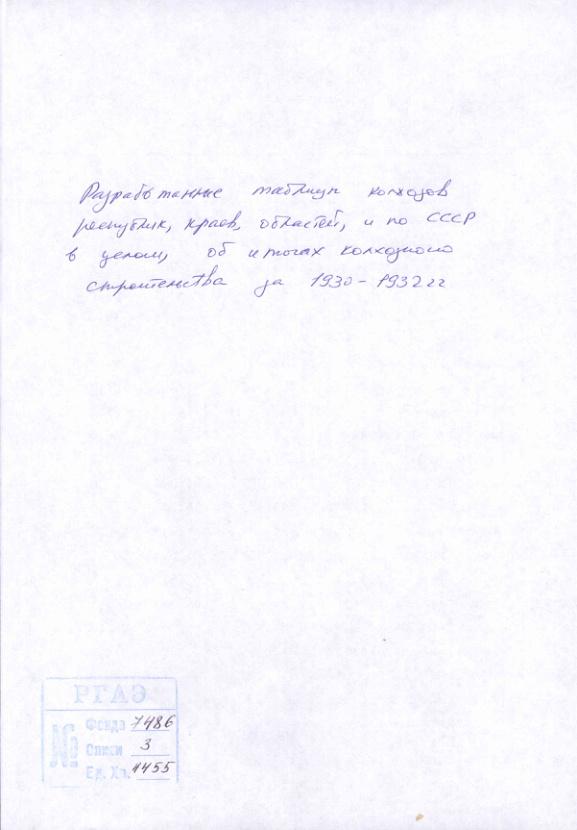 Разработанные таблицы колхозов
республик, краев, областей, и по СССР
в целом, об итогах колхозного
строительства за 1930-1932 гг
РГАЭ
№
Фонда 7486
Описи 3
Ед. Хр. 4455